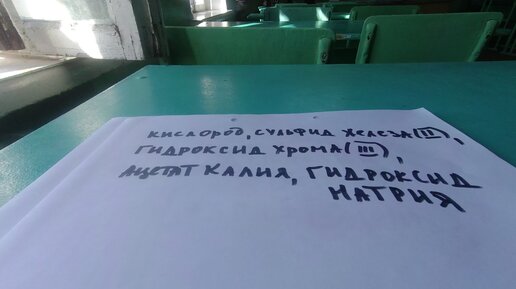 кислород, сульфид железа (II),
гидроксид хрома (III),
ацетат калия, гидроксид
натрия